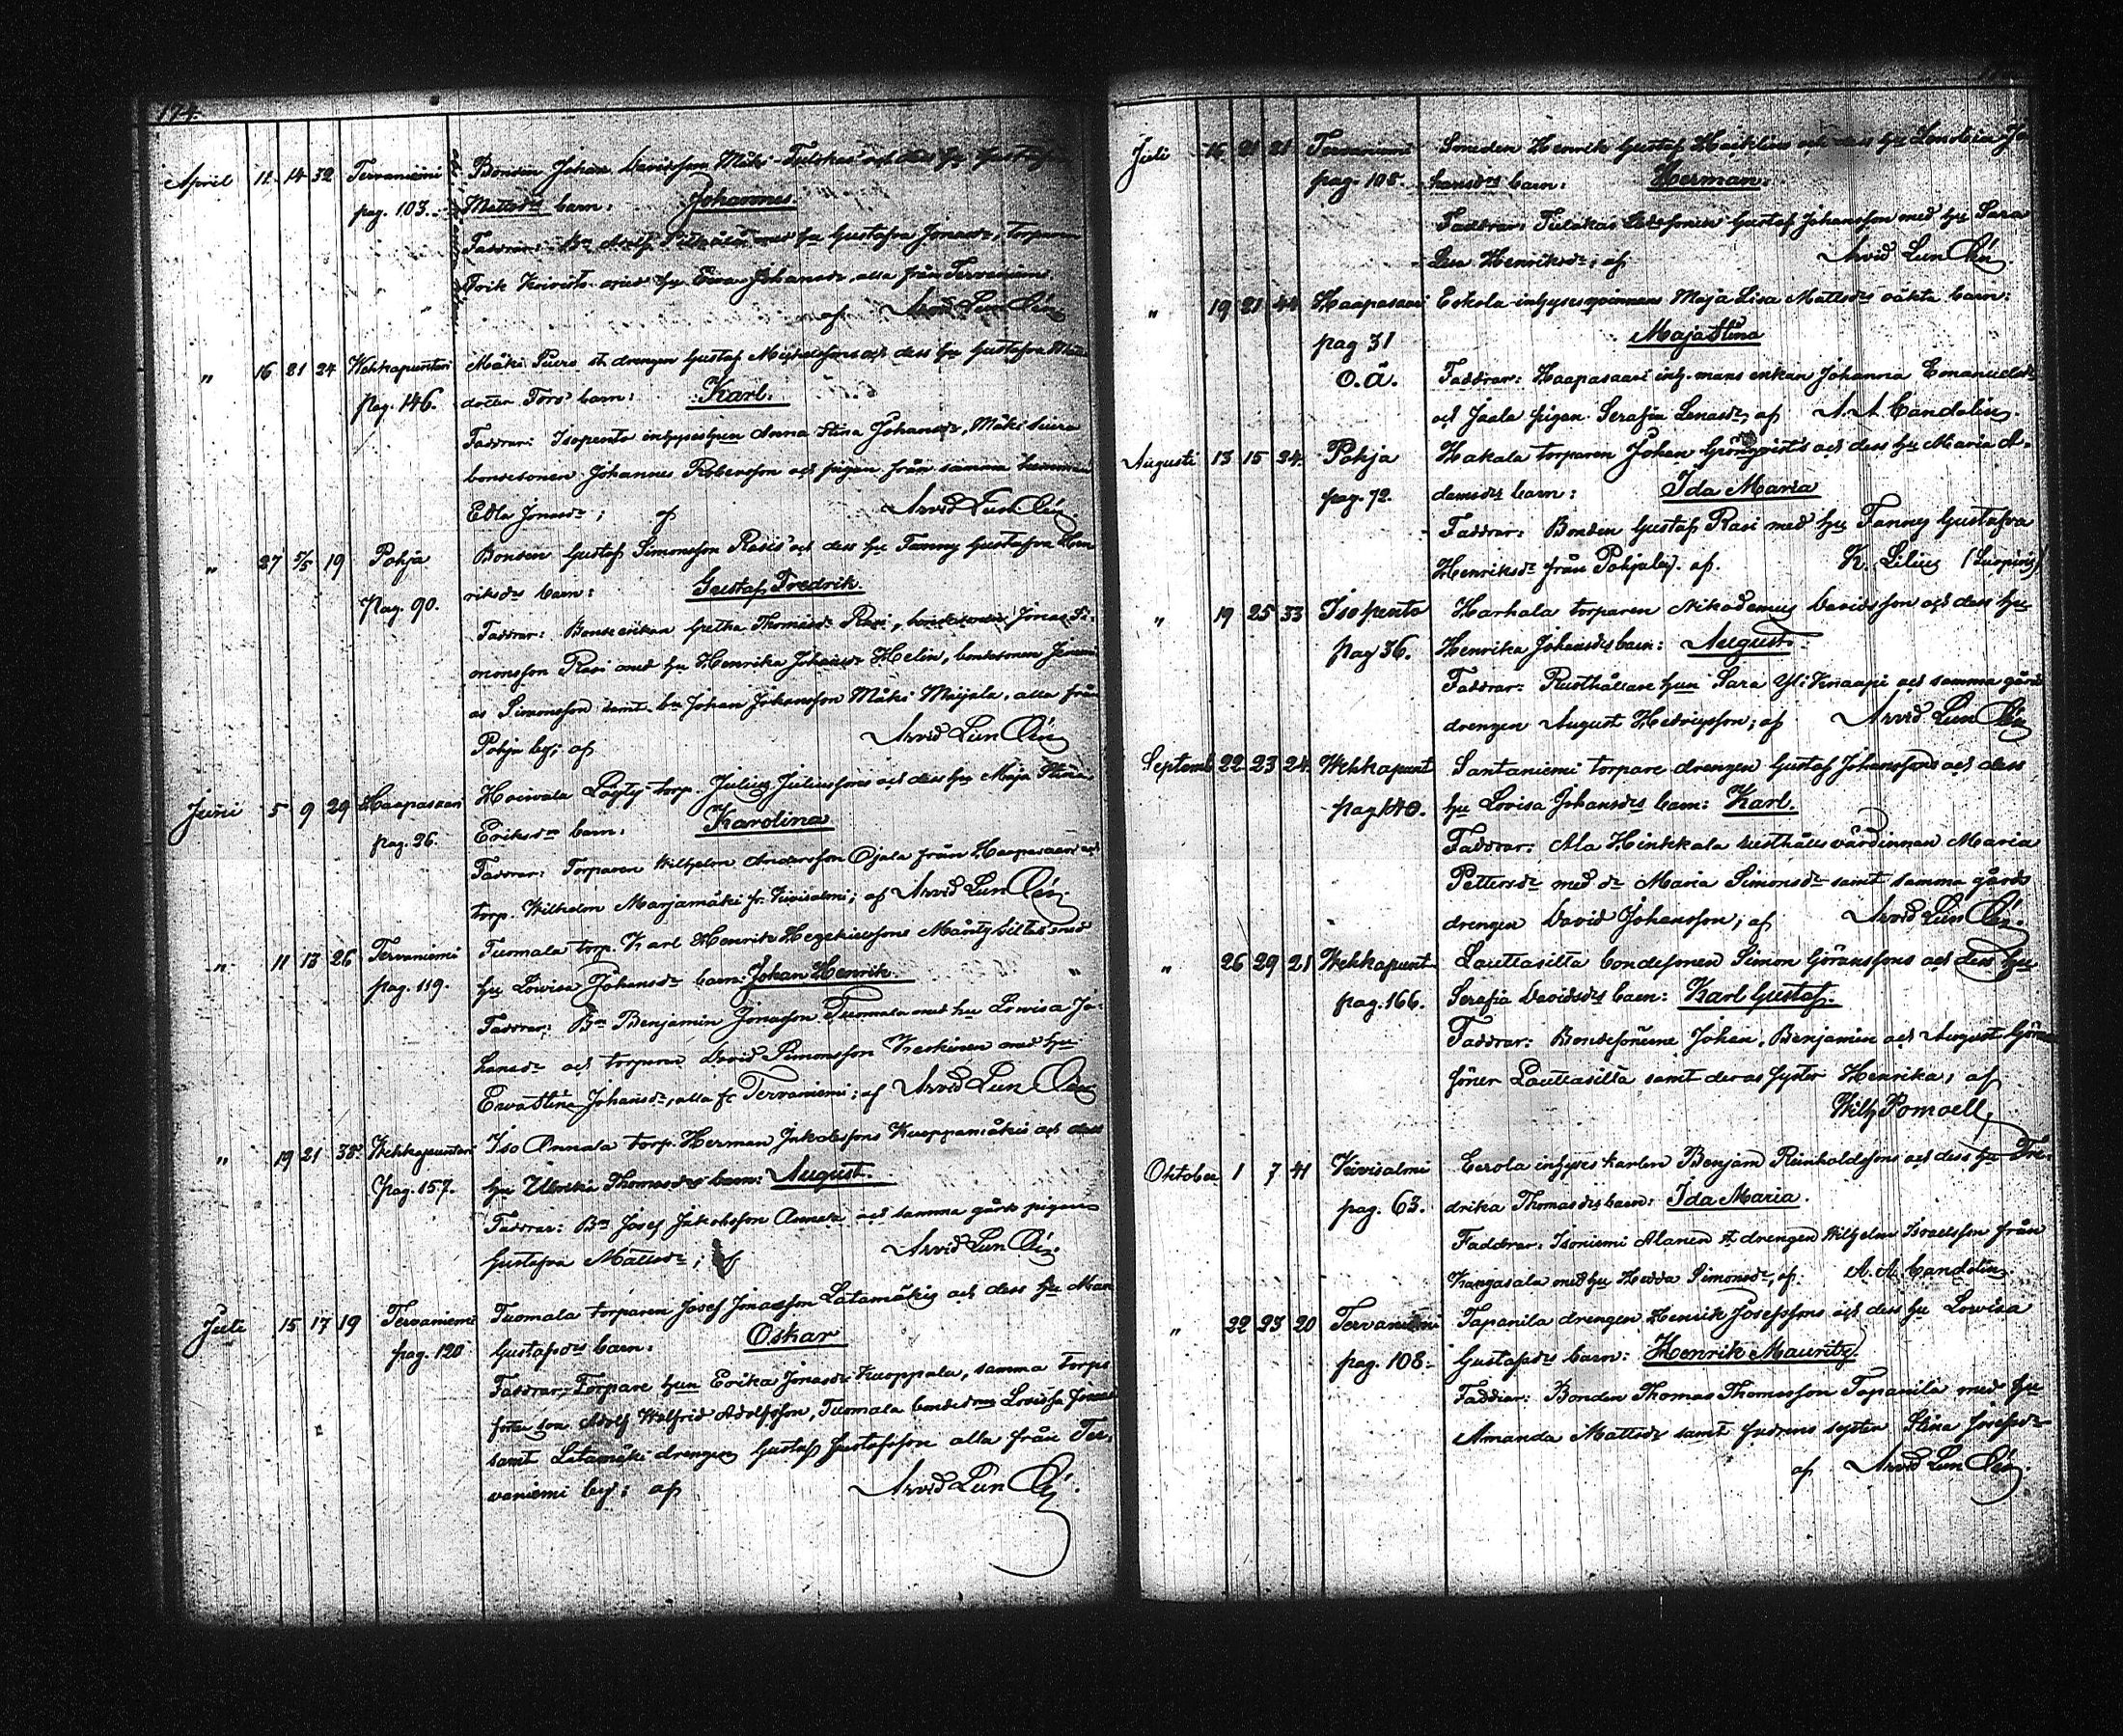 174.
April 12 14 32 Tervaniemi Bonden Johan Davidsson Mäki- och dess hu Gustafva
pag. 103. Mattsdrs barn: Johannes
Faddrar: Bn Adolf med hu Gustafva Jonasdr, torparen
Erik med hu Eva Johansdr, alla från Tervaniemi
af Arvid Lundén
" 16 21 24 Wehkapuntari Mäki drengen Gustaf Michelssons och dess hu Gustafva
pag. 146. dotter barn: Karl.
Faddrar: Isopento inhyseshun Anna Stina Johansdr, Mäki
bondesonen Johannes Robertsson och pigan från samma hemman
Edla Jonasdr; af Arvid Lundén.
" 27 5/5 19 Pohja Bonden Gustaf Simonsson Rasis och dess hu Fanny Gustafva Hen
pag. 90. riksdrs barn: Gustaf Fredrik
Faddrar: Bondeenkan Gretha Thomasdr Rasi, bondesonen Jonas Si-
monsson Rasi med hu Henrika Johansdr Helin, bondesonen
as Simonsson samt bn Johan Johansson Mäki Maijala, alla från
Pohja by; af Arvid Lundén
Juni 5 9 29 Haapasaari Löyty torp. Julius Juliussons och dess hu Maja Stina
pag. 26. Eriksdrs barn: Karolina
Faddrar: Torparen Wilhelm Andersson Ojala från Haapasaari och
torp. Wilhelm Marjamäki fr. Kivisalmi; af Arvid Lundén.
" 11 13 26 Tervaniemi Tuomala torp. Karl Henrik Hezekielssons Mäntysilta med
pag. 119. hu Lovisa Johansdr barn: Johan Henrik.
Faddrar: Bn Benjamin Jonasson Tuomala med hu Lovisa Jo-
hansdr och torparen David Simonsson Keskinen med hu
Eva Stina Johansdr, alla fr Tervaniemi; af Arvid Lundén
" 19 21 38 Wehkapuntari Iso Annala torp. Herman Jakobssons Kuoppamäkis och dess
pag. 157. hu Ulrika Thomasdrs barn: August.
Faddrar: Bn Josef Jakobsson Annala och samma gårds pigan
Gustafva Mattsdr; af Arvid Lundén.
Juli 15 17 19 Tervaniemi Tuomala torparen Josef Jonasson Latamäkis och dess hu Man
pag. 120 Gustafsdrs barn: Oskar
Faddrar: Torpare hun Erika Jonasdr Kuoppala, samma torps
foster son Adolf Walfrid Adolfsson, Tuomala bondedrn Lovisa
samt Latamäki drengen Gustaf Gustafsson alla från Ter-
vaniemi by; af Arvid Lundén.
Juli 16 21 21 Tervaniemi Smeden Henrik Gustaf Heiklins och dess hu Jo
pag. 108. hansdrs barn: Herman.
Faddrar: Gustaf Johansson med hu Sara
Lisa Henriksdr; af Arvid Lundén
" 19 21 44 Haapasaari Eskola inhysesqvinnans Maja Lisa Mattsdrs oäkta barn:
pag 31 Maja Stina
O.ä. Faddrar: Haapasaari inh. mans enkan Johanna Emanuelsdr
och Jaala pigan Serafia Lenasdr, af A. A. Candolin.
Augusti 13 15 34. Pohja Hakala torparen Johan Grönqvists och dess hu Maria A-
pag. 72. damsdrs barn: Ida Maria
Faddrar: Bonden Gustaf Rasi med hu Fanny Gustafva
Henriksdr från Pohja by. af. K. Lilius
" 19 25 33 Isopento Harhala torparen Nikodemus Davidsson och dess hu
pag 36. Henrika Johansdrs barn: August.
Faddrar: Rusthållare hun Sara Yli Knaapi och samma gårds
drengen August Hedvigsson; af Arvid Lundén
Septemb. 22 23 24 Wehkapunt. Santaniemi torpare drengen Gustaf Johanssons och dess
pag 140. hu Lovisa Johansdrs barn: Karl.
Faddrar: Ala Heikkala rusthålls värdinnan Maria
Pettersdr med dr Maria Simonsdr samt samma gårds
drengen David Johansson; af Arvid Lundén.
" 26 29 21 Wehkapunt. Lauttasilta bondesonen Simon Göranssons och dess hu
pag. 166. Serafia Davidsdrs barn: Karl Gustaf.
Faddrar: Bondesönerne Johan, Benjamin och August Görans
söner Lauttasilta samt deras syster Henrika; af
Wilh Pomoell.
Oktober 1 7 41 Kivisalmi Eerola inhyses karlen Benjam Reinholdssons och dess hu Fre-
pag. 63. drika Thomasdrs barn: Ida Maria.
Faddrar: Isoniemi Alanen st drengen Wilhelm Israelsson från
Kangasala med hu Hedda Simonsdr, af. A. A. Candolin.
" 22 23 20 Tervaniemi Tapanila drengen Henrik Josefssons och dess hu Lowisa
pag. 108. Gustafsdrs barn: Henrik Mauritz.
Faddrar: Bonden Thomas Thomasson Tapanila med hu
Amanda Mattsdr samt fadrens syster Stina Josefsdr
af Arvid Lundén.